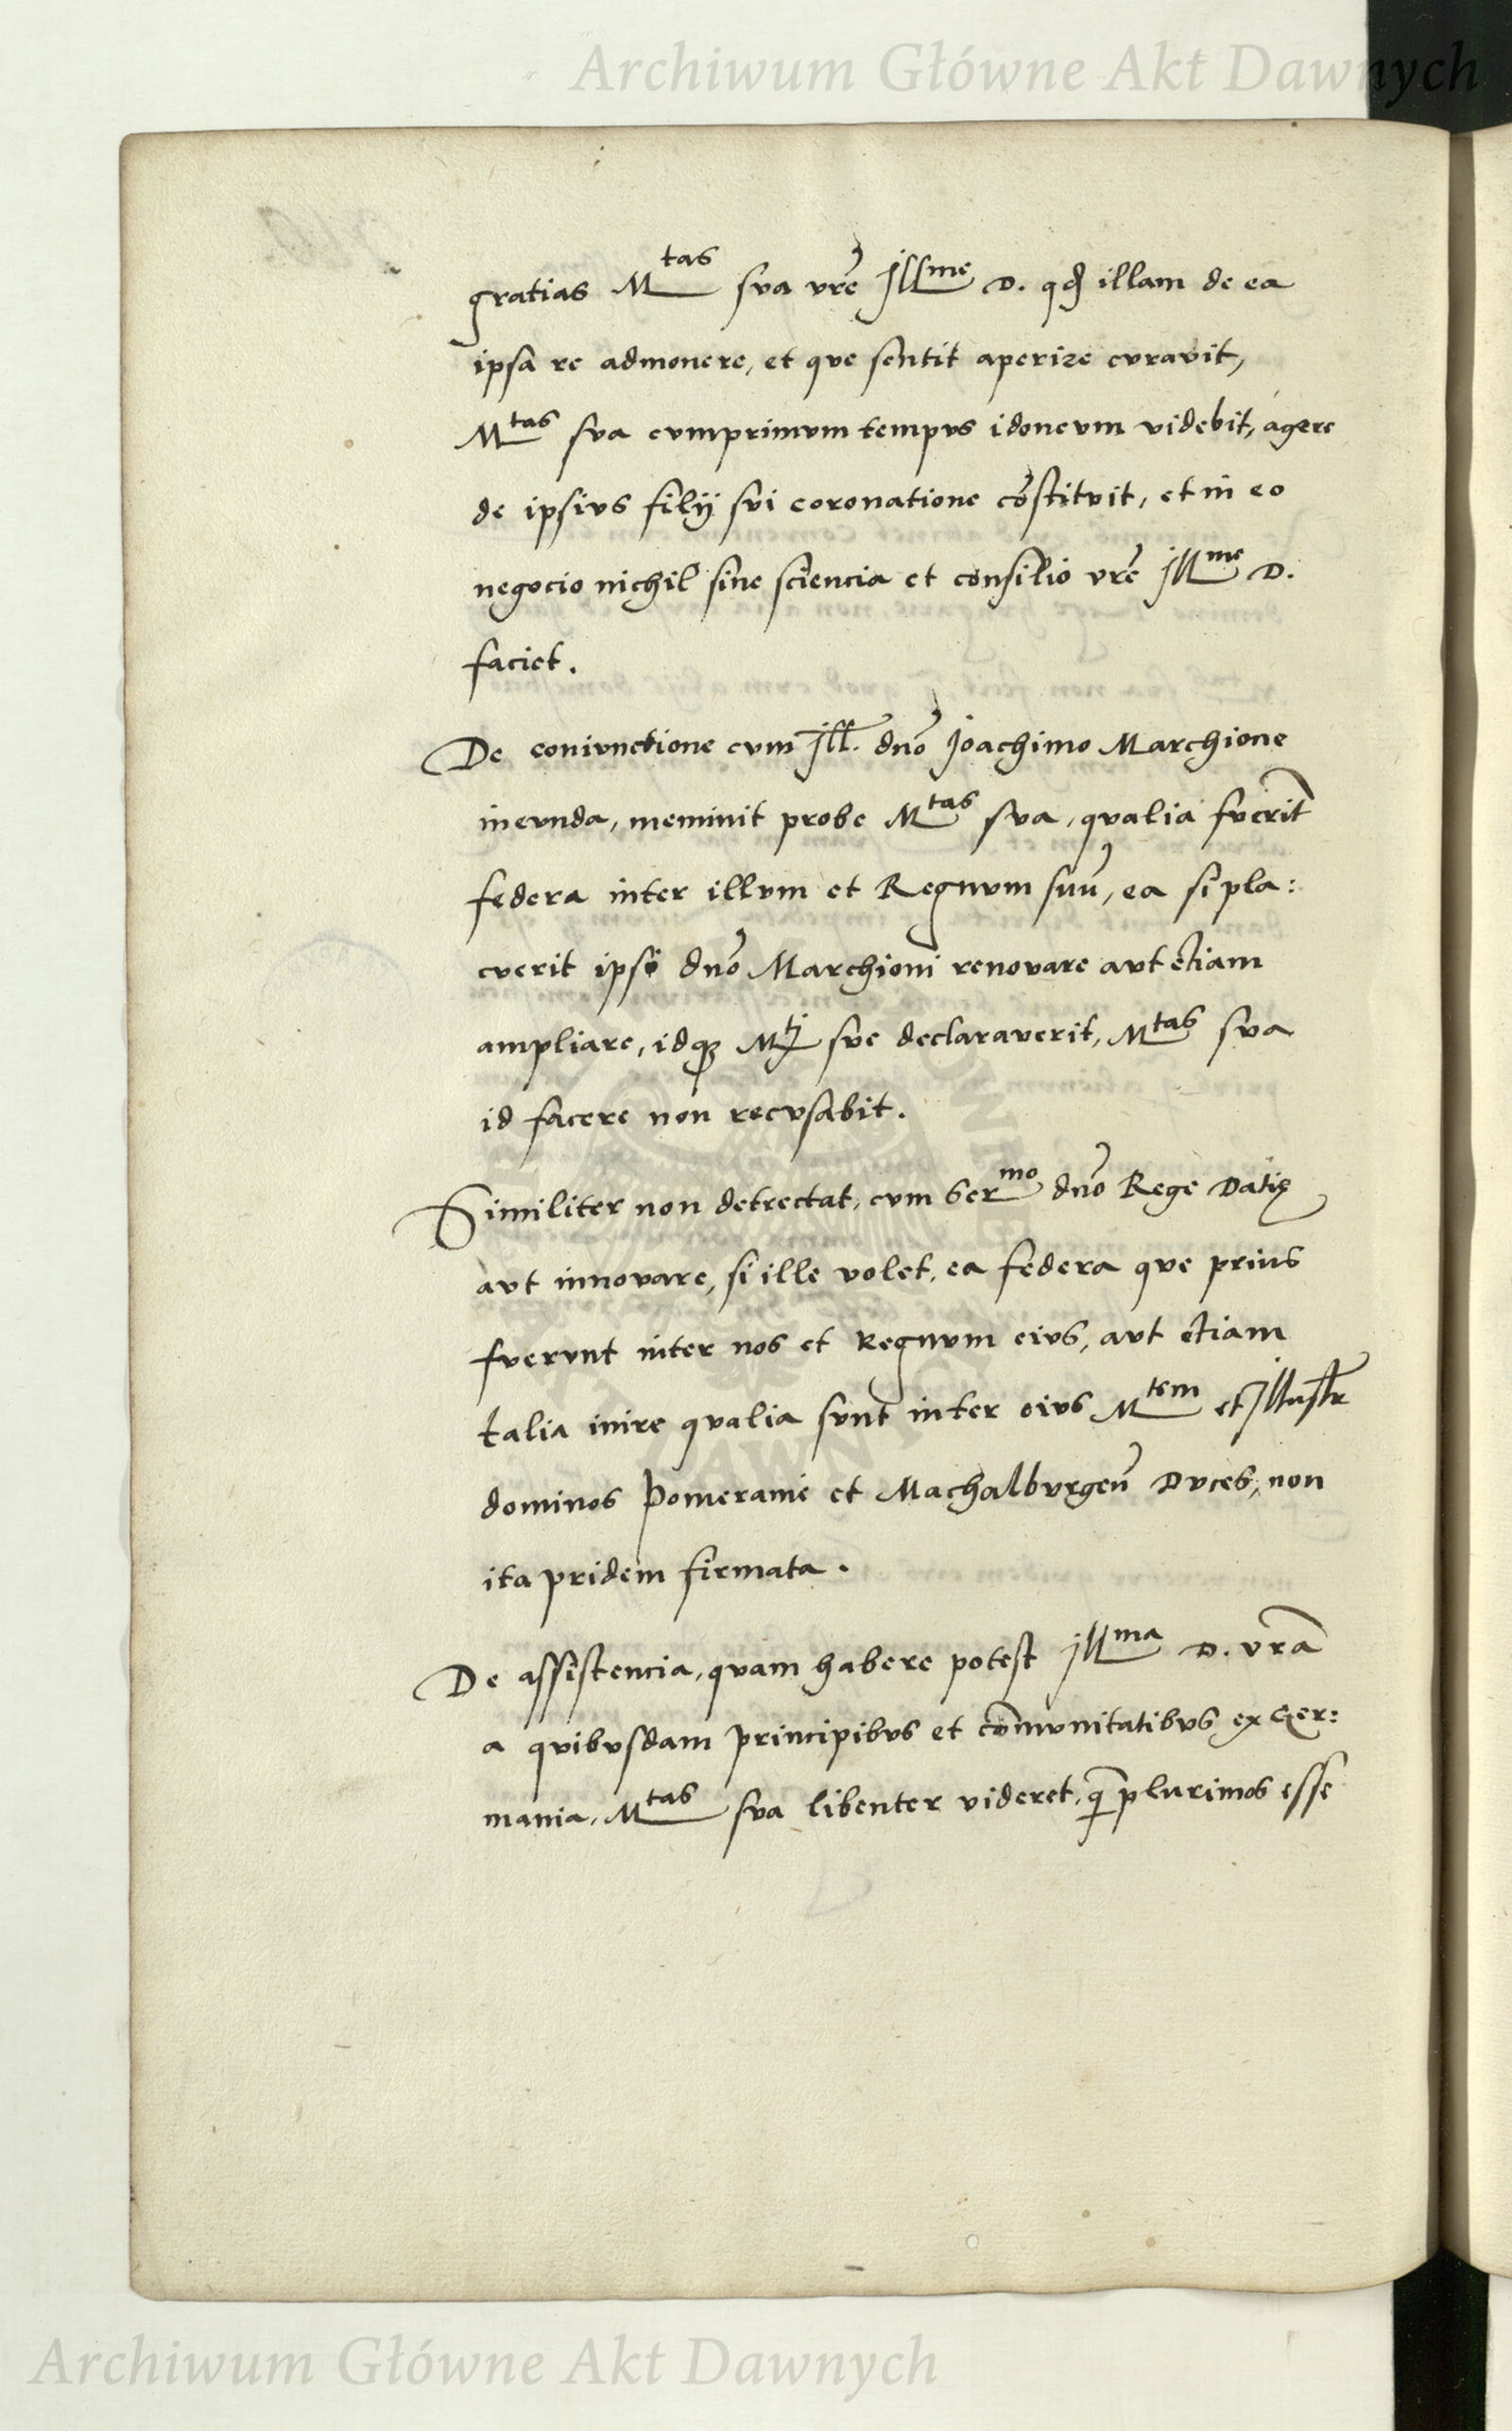 Archiwum Główne Akt Dawnych
gratias Mtas sua vrē Jllme D. qđ illam de ea
ipsa re admonere, et que sentit aperire curavit,
Mtas sua cumprimum tempus idoneum videbit, agere
de ipsius filij sui coronatione cōstituit, et in eo
negocio nichil sine sciencia et consilio vrē Jllme D.
faciet.
De coniunctione cum Jll. dnō Joachimo Marchione
ineunda, meminit probe Mtas sua, qualia fuerīt
federa inter illum et Regnum suū, ea si pla:
cuerit ipsi dnō Marchioni renovare aut etiam
ampliare, idqȝ Mtj sue declaraverit, Mtas sua
id facere non recusabit.
Similiter non detrectat, cum Sermo dnō Rege Datię
aut innovare, si ille volet, ea federa que prius
fuerunt inter nos et Regnum eius, aut etiam
talia inire qualia sunt inter eius Mtem et Jllustr
dominos Pomeranie et Machalburgeñ Duces, non
ita pridem firmata.
De assistencia, quam habere potest Jllma D. vrā
a quibusdam principibus et cōmunitatibus ex Ger:
mania, Mtas sua libenter videret, q̄ plurimos esse
Archiwum Główne Akt Dawnych